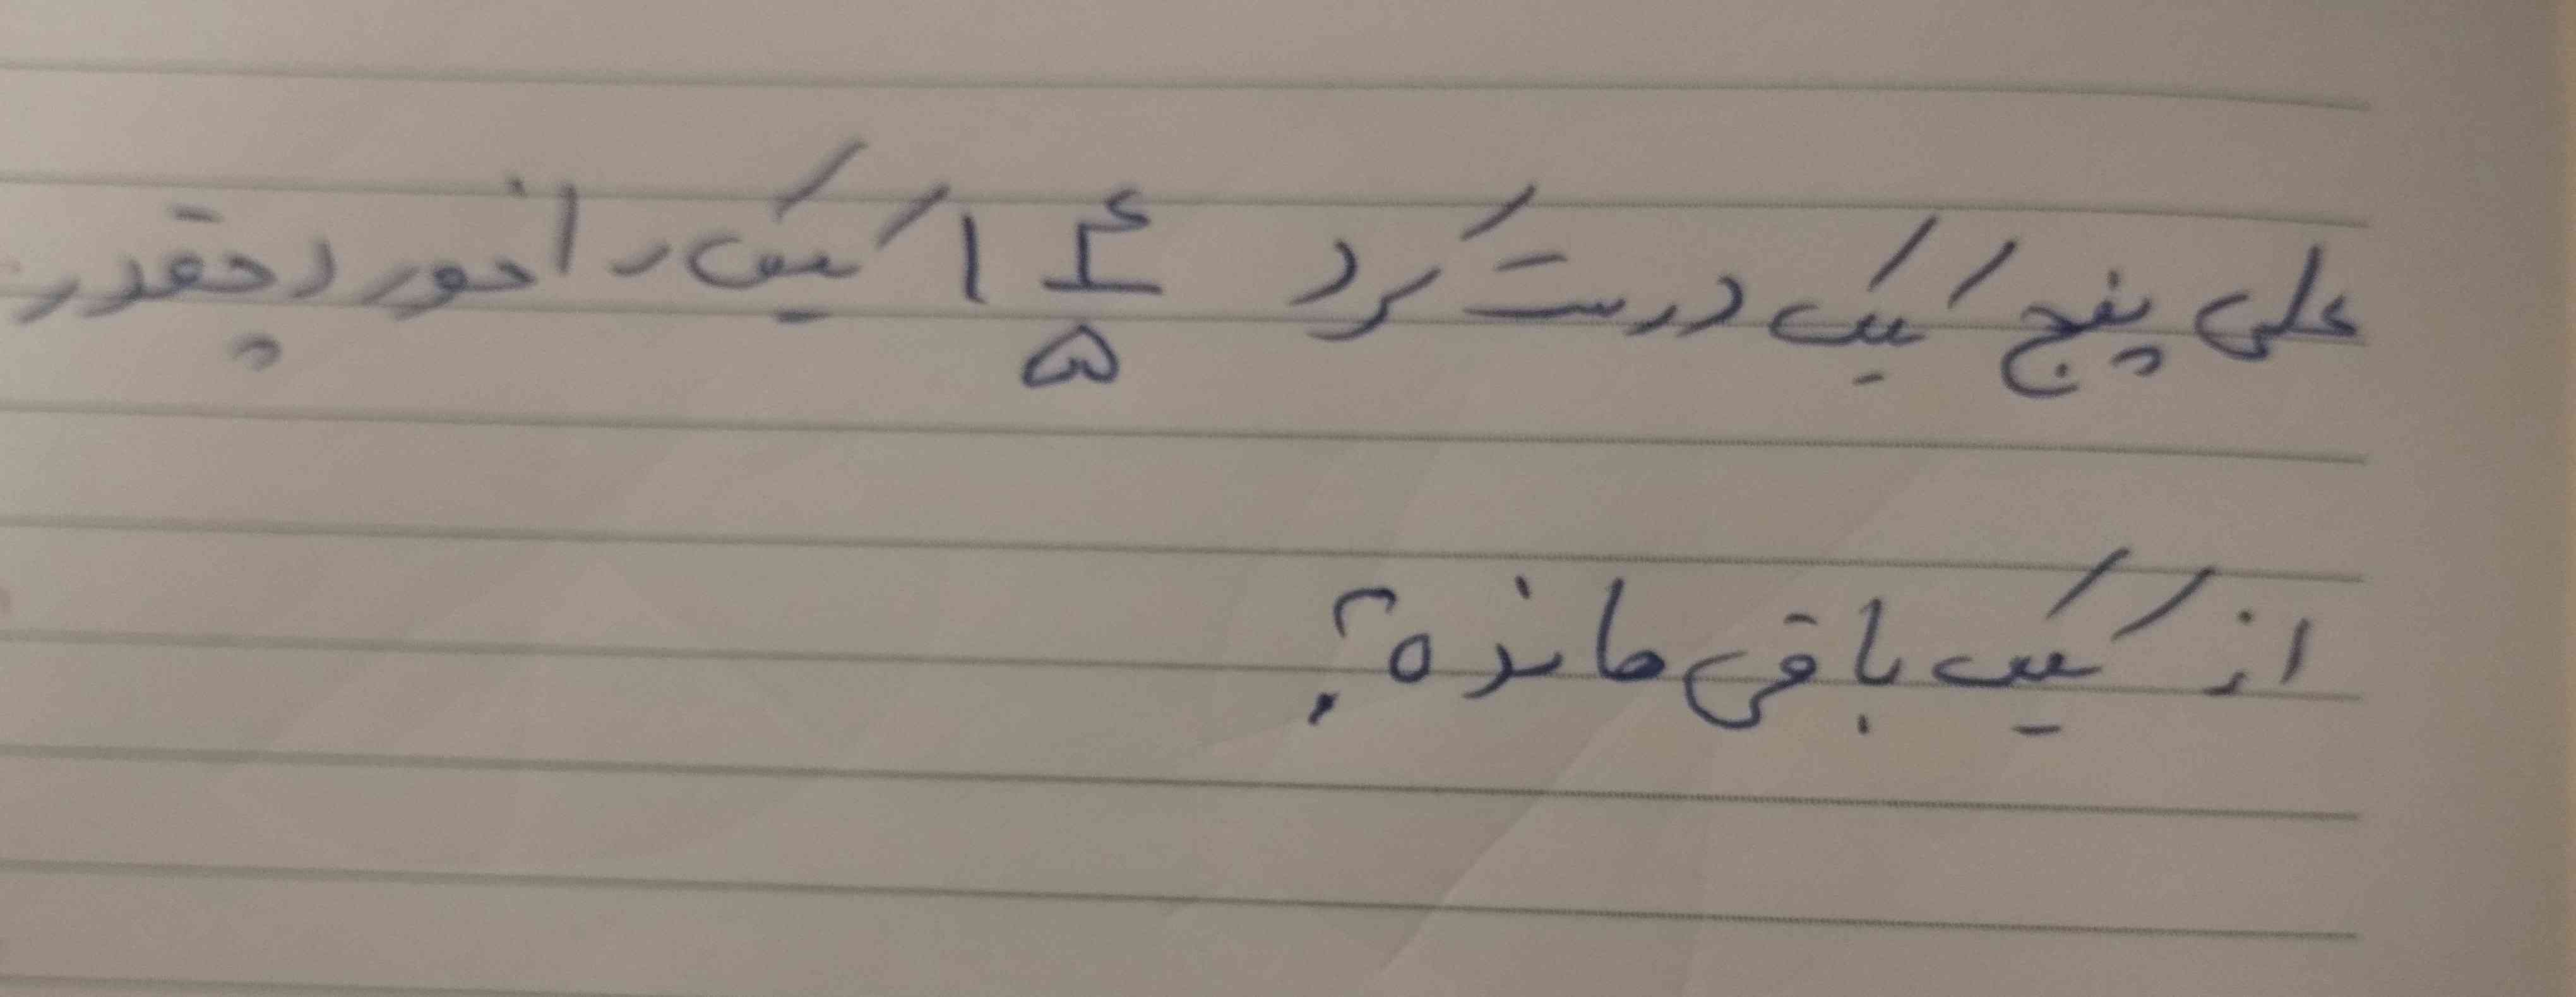 علی پنج کیک درست کرد ۱ ۴/۵ کیک را خورد چقدر
از کیک باقی مانده؟